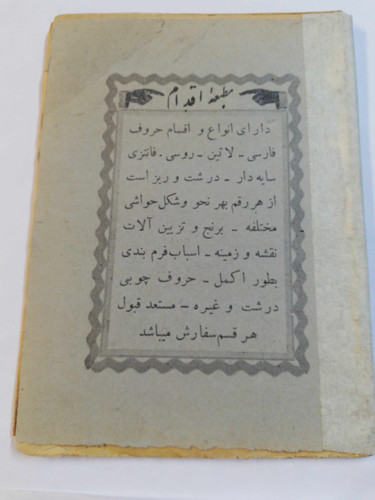 مطبعهٔ اقدام
دارای انواع و اقسام حروف
فارسی ـ لاتین ـ روسی ـ فانتزی
سایه‌دار ـ درشت و ریز است
از هر رقم بهر نحو و شکل حواشی
مختلفه ـ برنج و تزیین آلات
نقشه و زمینه ـ اسباب فرم بندی
بطور اکمل ـ حروف چوبی
درشت و غیره ـ مستعد قبول
هر قسم سفارش میباشد